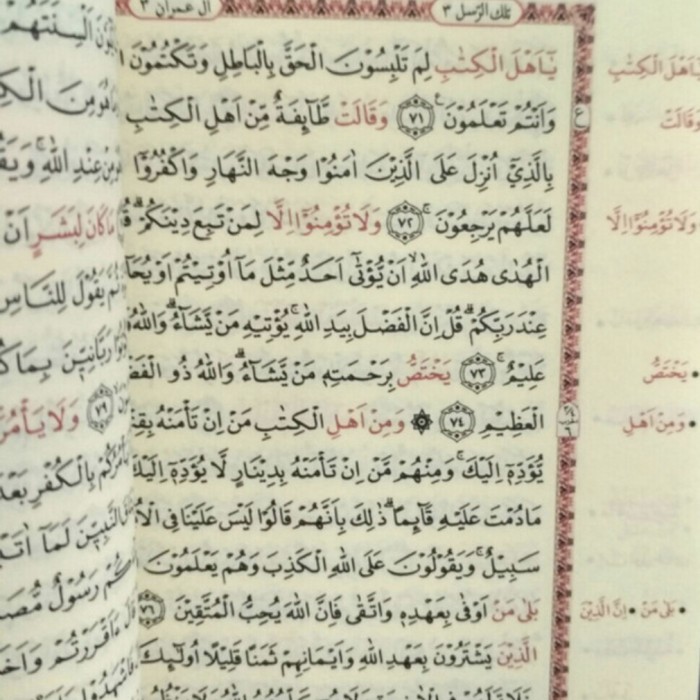 تلك الرسل ٣
آل عمران ٣
يٰٓاَهْلَ الْكِتٰبِ لِمَ تَلْبِسُوْنَ الْحَقَّ بِالْبَاطِلِ وَتَكْتُمُوْنَ
وَاَنْتُمْ تَعْلَمُوْنَ ۚ ﴿٧١﴾ وَقَالَتْ طَّآىِٕفَةٌ مِّنْ اَهْلِ الْكِتٰبِ
بِالَّذِيْٓ اُنْزِلَ عَلَى الَّذِيْنَ اٰمَنُوْا وَجْهَ النَّهَارِ وَاكْفُرُوْٓا
لَعَلَّهُمْ يَرْجِعُوْنَ ۚ ﴿٧٢﴾ وَلَا تُؤْمِنُوْٓا اِلَّا لِمَنْ تَبِعَ دِيْنَكُمْ ۗ
الْهُدٰى هُدَى اللّٰهِ ۙ اَنْ يُّؤْتٰىٓ اَحَدٌ مِّثْلَ مَآ اُوْتِيْتُمْ اَوْ
عِنْدَ رَبِّكُمْ ۗ قُلْ اِنَّ الْفَضْلَ بِيَدِ اللّٰهِ ۚ يُؤْتِيْهِ مَنْ يَّشَاۤءُ ۗ وَاللّٰهُ
عَلِيْمٌ ۚ ﴿٧٣﴾ يَخْتَصُّ بِرَحْمَتِهٖ مَنْ يَّشَاۤءُ ۗ وَاللّٰهُ ذُو
الْعَظِيْمِ ﴿٧٤﴾ ۞ وَمِنْ اَهْلِ الْكِتٰبِ مَنْ اِنْ تَأْمَنْهُ
يُّؤَدِّهٖٓ اِلَيْكَ ۚ وَمِنْهُمْ مَّنْ اِنْ تَأْمَنْهُ بِدِيْنَارٍ لَّا يُؤَدِّهٖٓ اِلَيْكَ
مَا دُمْتَ عَلَيْهِ قَاۤىِٕمًا ۗ ذٰلِكَ بِاَنَّهُمْ قَالُوْا لَيْسَ عَلَيْنَا فِى
سَبِيْلٌ ۚ وَيَقُوْلُوْنَ عَلَى اللّٰهِ الْكَذِبَ وَهُمْ يَعْلَمُوْنَ
بَلٰى مَنْ اَوْفٰى بِعَهْدِهٖ وَاتَّقٰى فَاِنَّ اللّٰهَ يُحِبُّ الْمُتَّقِيْنَ ﴿٧٦﴾
الَّذِيْنَ يَشْتَرُوْنَ بِعَهْدِ اللّٰهِ وَاَيْمَانِهِمْ ثَمَنًا قَلِيْلًا اُولٰۤىِٕكَ
وَقَالَتْ
وَلَا تُؤْمِنُوْٓا اِلَّا
• يَخْتَصُّ
• وَمِنْ اَهْلِ
• بَلٰى مَنْ • اِنَّ الَّذِيْنَ
مِنْ عِنْدِ اللّٰهِ ۚ
مَا كَانَ لِبَشَرٍ اَنْ
يَقُوْلَ لِلنَّاسِ
رَبَّانِيّٖنَ بِمَا
﴿٧٩﴾ وَلَا
بِالْكُفْرِ بَعْدَ
النَّبِيّٖنَ لَمَآ
رَسُوْلٌ